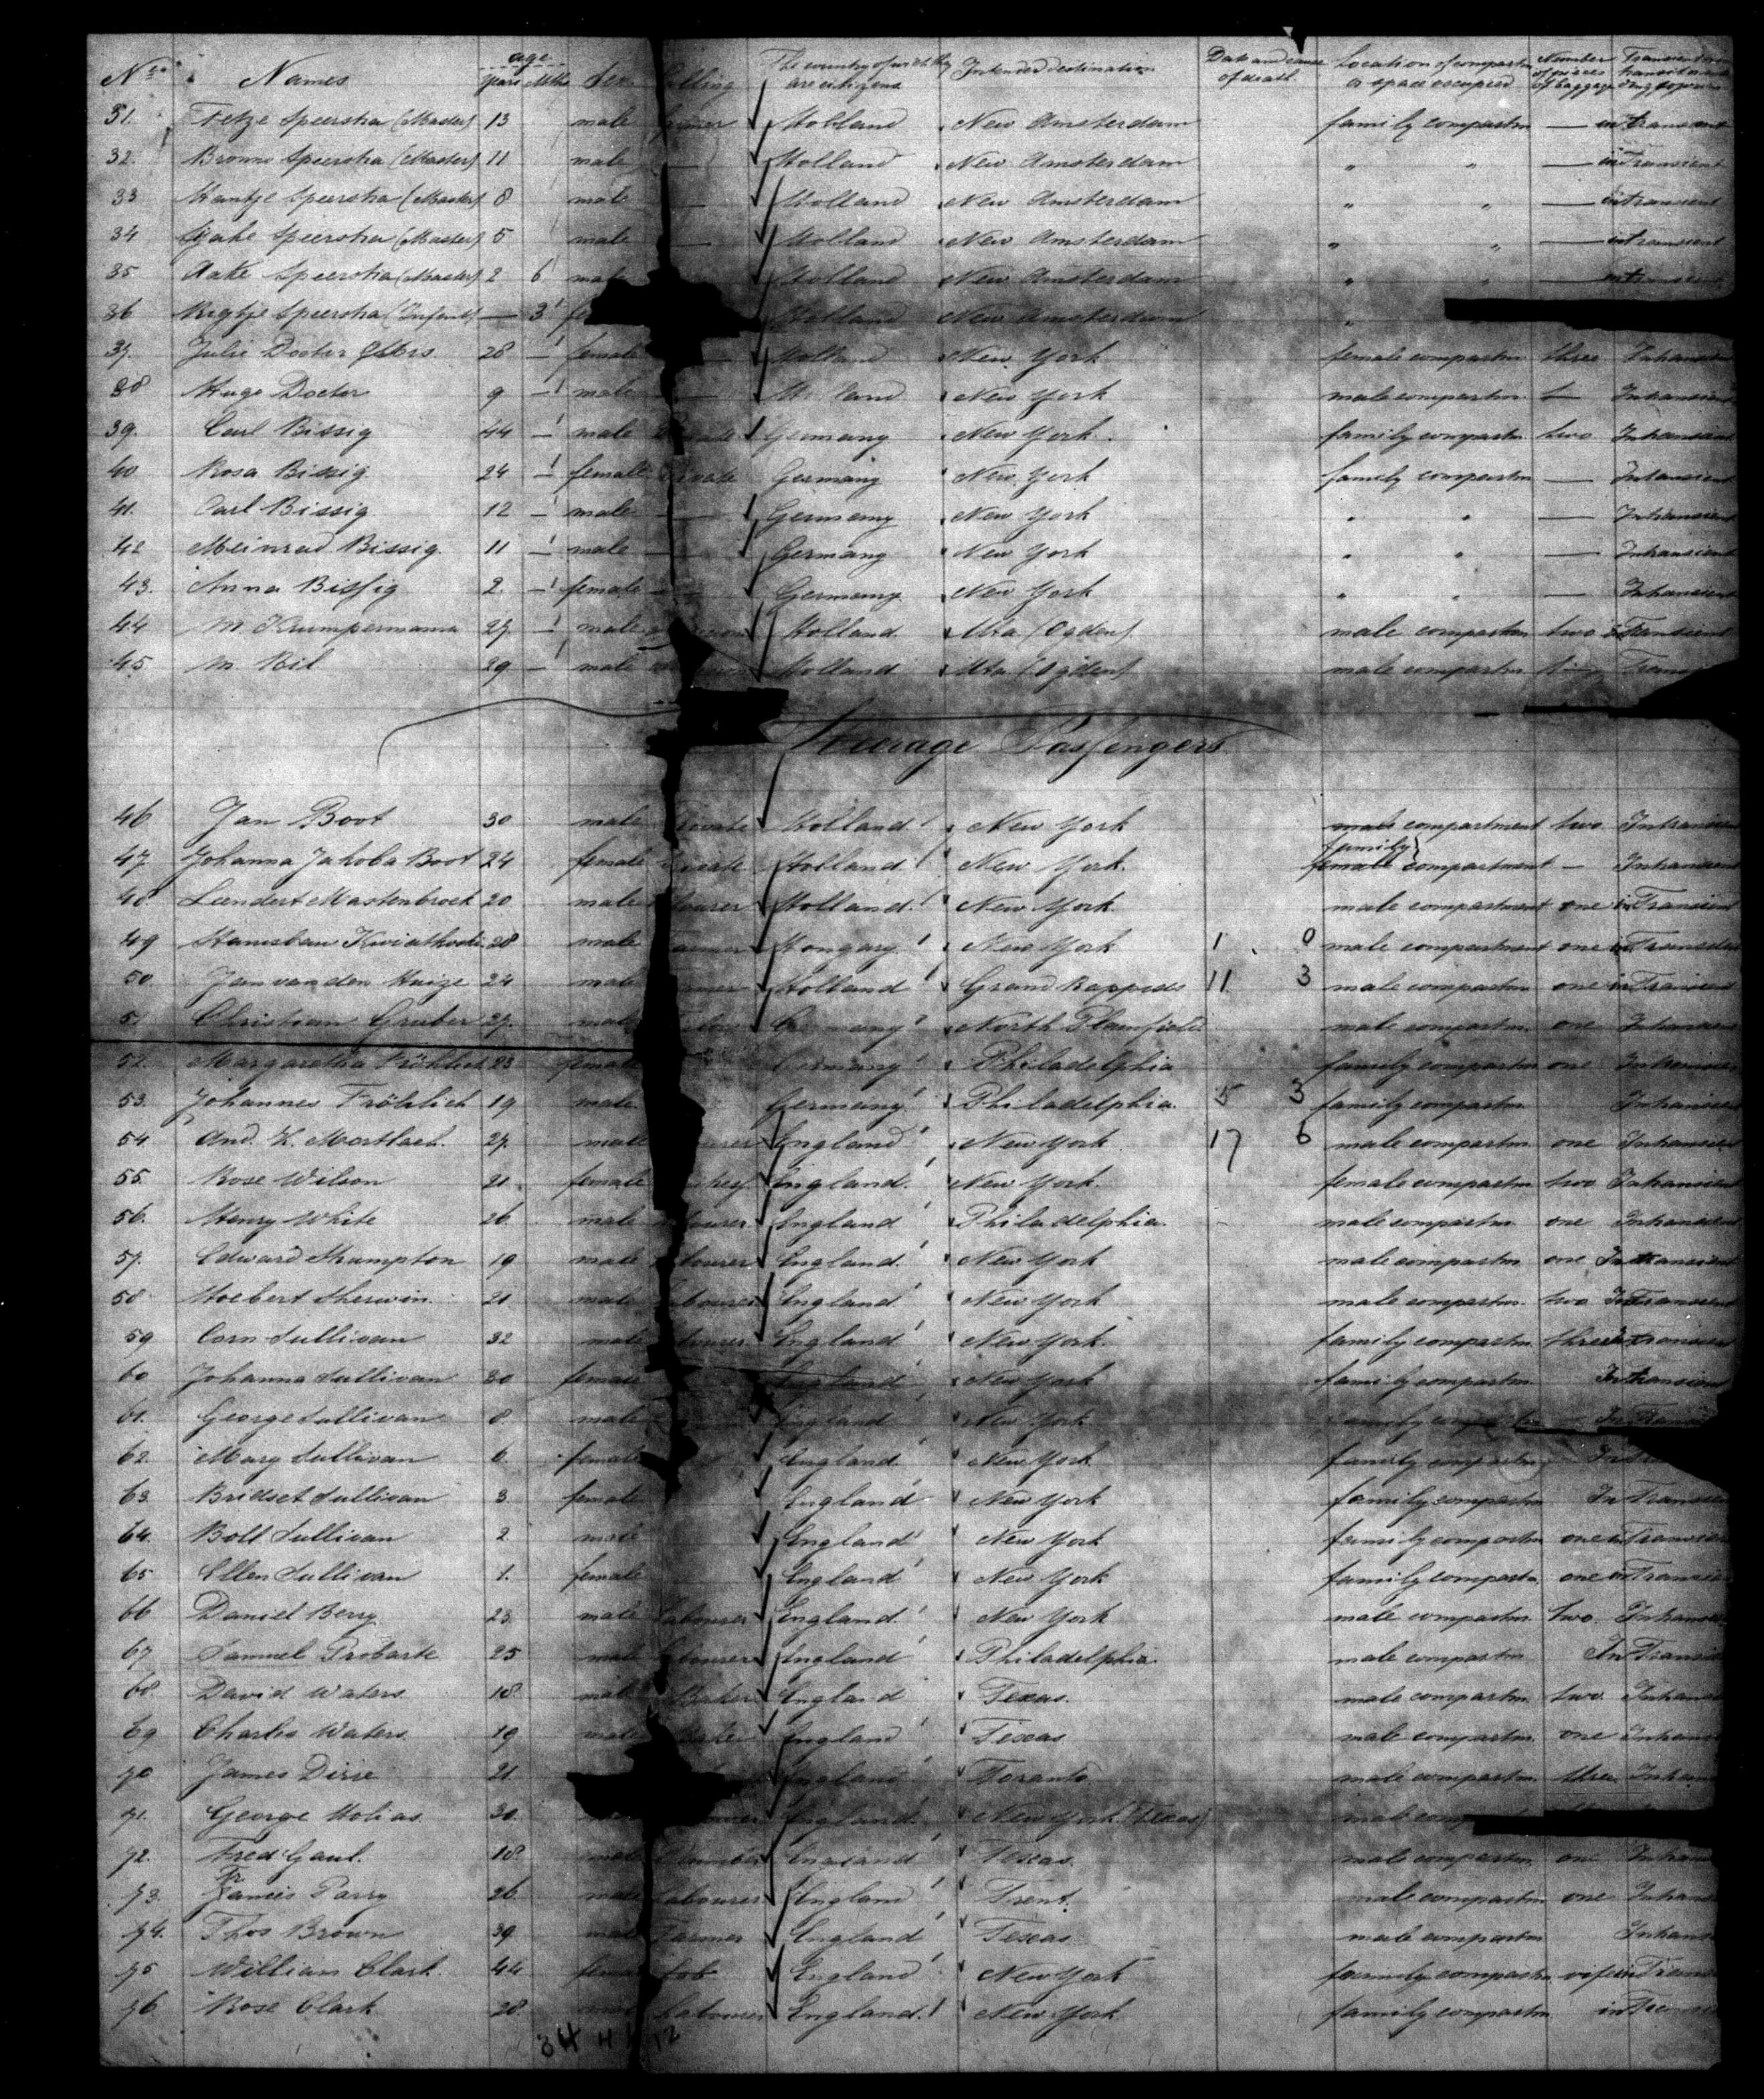 No. Names age years Mths Sex Calling The country of which they are citizens Intended destination Date and cause of death Location of compartm or space occupied Number of pieces of baggage
31. Fetze Speerstra (Master) 13 male farmer Holland New Amsterdam family compartm — in transient
32. Bronno Speerstra (Master) 11 male — Holland New Amsterdam " " — in Transient
33 Mantje Speerstra (Master) 8 male — Holland New Amsterdam " " — in transient
34 Sjake Speerstra (Master) 5 male — Holland New Amsterdam " " — in transient
35 Aake Speerstra (Master) 2 6 male Holland New Amsterdam " " — in transient
36 Rigtje Speerstra (Infant) — 3 Holland New Amsterdam "
37. Julie Docter 28 — female — Holland New York female compartm three Intransient
38 Hugo Docter 9 — male — Holland New York male compartm Intransient
39. Carl Bissig 44 — male Private Germany New York. family compartm two Intransient
40 Rosa Bissig 24 — female Private Germany New York family compartm — Intransient
41. Carl Bissig 12 — male — Germany New York " " — Intransient
42 Meinrad Bissig. 11 — male — Germany New York " " — Intransient
43. Anna Bissig 2. — female — Germany New York " " — Intransient
44 M. Krumpermann 27 — male Holland Uta (Ogden) male compartm two in Transient
45 M. Bil 29 — male Holland Uta (Ogden) male compartm
Steerage Passengers
46 Jan Boot 30 male Private Holland New York male compartment two Intransient
47. Johanna Jakoba Boot 24 female Private Holland New York. family female compartment — Intransient
48 Leendert Mastenbroek 20 male labourer Holland New York male compartment one in Transient
49 28 male farmer Hongary New York 1 0 male compartment one in Transient
50. Jan van den Huize 24 male farmer Holland Grand Rappeds 11 3 male compartm one in Transient
51 Christian Gruber 27. male Germany North Plainfield male compartm one Intransient
52. Margaretha Fröhlich 23 female Germany Philadelphia family compartm one Intransient
53. Johannes Fröhlich 19 male Germany Philadelphia. 5 3 family compartm Intransient
54. And. H. Mortlach. 27. male labourer England New York 17 6 male compartm one Intransient
55. Rose Wilson 21. female England. New York. female compartm two Intransient
56. Henry White 26 male labourer England Philadelphia. male compartm one Intransient
57. Edward Shumpton 19 male labourer England. New York male compartm one Intransient
58. Hoebert Sherwin. 21 male labourer England New York male compartm. two Intransient
59 Corn Sullivan 32 male labourer England New York. family compartm. three Intransient
60 Johanna Sullivan 30 female England New York family compartm Intransient
61. George Sullivan 8 male England New York family compartm In Transient
62. Mary Sullivan 6. female England. New York family compartm
63. Bridset Sullivan 3 female England New York family compartm In Transient
64. Bolt Sullivan 2 male England New York family compartm one in Transient
65 Ellen Sullivan 1. female England New York family compartm one in Transient
66 Daniel Berry 23. male labourer England. New York male compartm two. Intransient
67 Samuel Probarte 25 male labourer England Philadelphia. male compartm In Transient
68 David Waters 18 male Baker England Texas. male compartm two. Intransient
69 Charles Waters 19 male Baker England Texas male compartm. one Intransient
70 James Dirre 21. England Toranto male compartm. three Intransient
71. George Hobias. 30. England. New York (Texas) male comp
72. Fred Gaul. 18 male Plumber England Texas. male compartm. one Intransient
73. Francis Parry 26. male Labourer England Trent. male compartm. one Intransient
74. Thos Brown 39 male Farmer England Texas. male compartm Intransient
75 William Clark. 44 England New York family compartm in Transient
76. Rose Clark 28. Labourer England. New York family compartm. in Transient
34 4 12